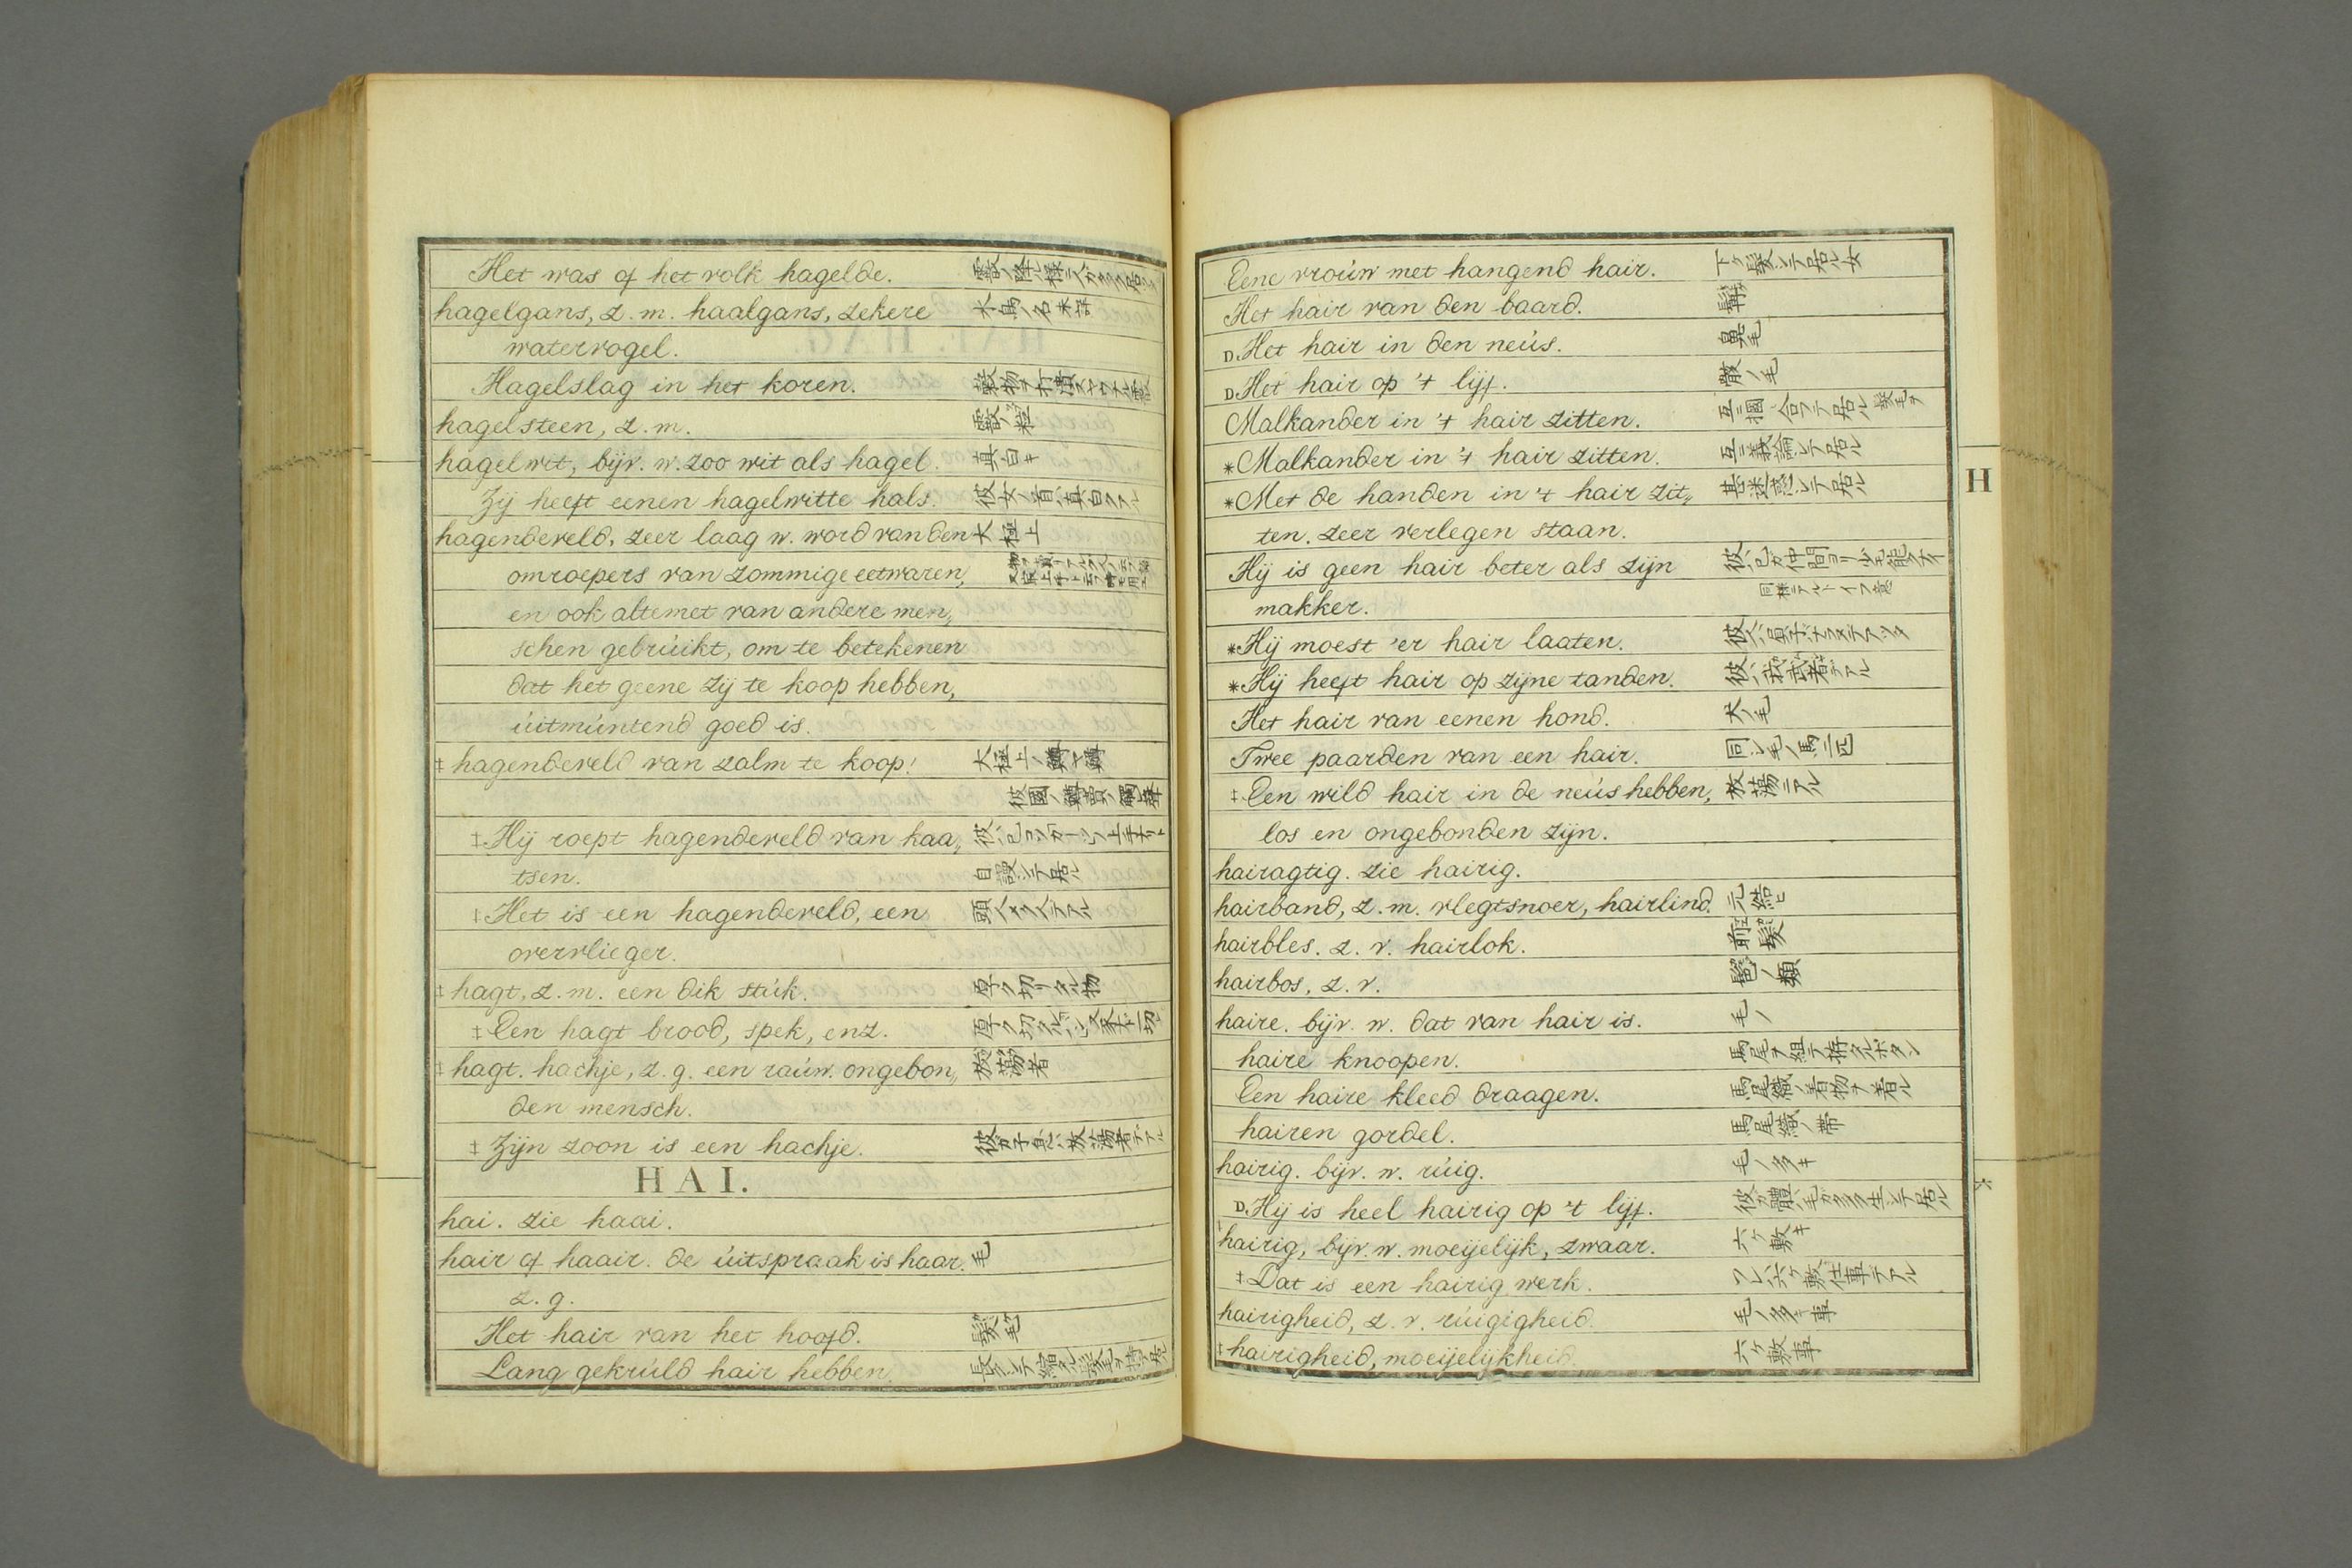 Het was of het volk hagelde.
hagelgans, z.m. haalgans, zekere 水鳥ノ名未詳
watervogel.
Hagelslag in het koren.
hagelsteen, z.m. 雹ノ粒
hagelwit, bijv. w. zoo wit als hagel. 真白キ
Zy heeft eenen hagelwitte hals.
hagendeveld, zeer laag w. word van den 大極上
omroepers van zommige eetwaren,
en ook altemet van andere men„
schen gebrúikt, om te betekenen
dat het geene zij te koop hebben,
úitmúntend goed is.
‡ hagendeveld van zalm te koop! 大極上ノ鱒々々
‡ Hij roept hagendeveld van kaa„
tsen. 自謾シテ居ル
‡ Het is een hagendeveld, een
overvlieger.
‡ hagt, z.m. een dik stúk. 厚ク切リタル物
‡ Een hagt brood, spek, enz.
‡ hagt. hachje, z.g. een raúw. ongebon„ 放蕩者
den mensch.
‡ Zijn zoon is een hachje. 彼ガ子息ハ放蕩者デアル
HAI.
hai. zie haai.
hair of haair. de úitspraak is haar. 毛
z.g.
Het hair van het hoofd. 髪毛
Lang gekrúld hair hebben.
Eene vroúw met hangend hair. 下ケ髪シテ居ル女
Het hair van den baard.
D. Het hair in den neús. 鼻毛
D. Het hair op 't lijf.
Malkander in 't hair zitten.
* Malkander in 't hair zitten. 互ニ義論シテ居ル
* Met de handen in 't hair zit„ 甚迷惑シテ居ル
ten. zeer verlegen staan.
Hij is geen hair beter als zijn
makker.
* Hij moest 'er hair laaten.
* Hij heeft hair op zijne tanden.
Het hair van eenen hond. 犬ノ毛
Twee paarden van een hair. 同シ毛ノ馬二匹
‡ Een wild hair in de neús hebben, 放蕩デアル
los en ongebonden zijn.
hairagtig. zie hairig.
hairband, z.m. vlegtsnoer, hairlind. 元結
hairbles. z.v. hairlok. 前髪
hairbos, z.v.
haire. bijv. w. dat van hair is. 毛ノ
haire knoopen.
Een haire kleed draagen. 馬尾織ノ着物ヲ着ル
hairen gordel. 馬尾織ノ帯
hairig. bijv. w. rúig. 毛ノ多キ
D. Hij is heel hairig op 't lijf.
‡ hairig, bijv. w. moeijelijk, zwaar. 六ケ敷キ
‡ Dat is een hairig werk. ソレハ六ケ敷仕事デアル
hairigheid, z.v. rúigigheid. 毛ノ多キ事
‡ hairigheid, moeijelijkheid. 六ケ敷事
H